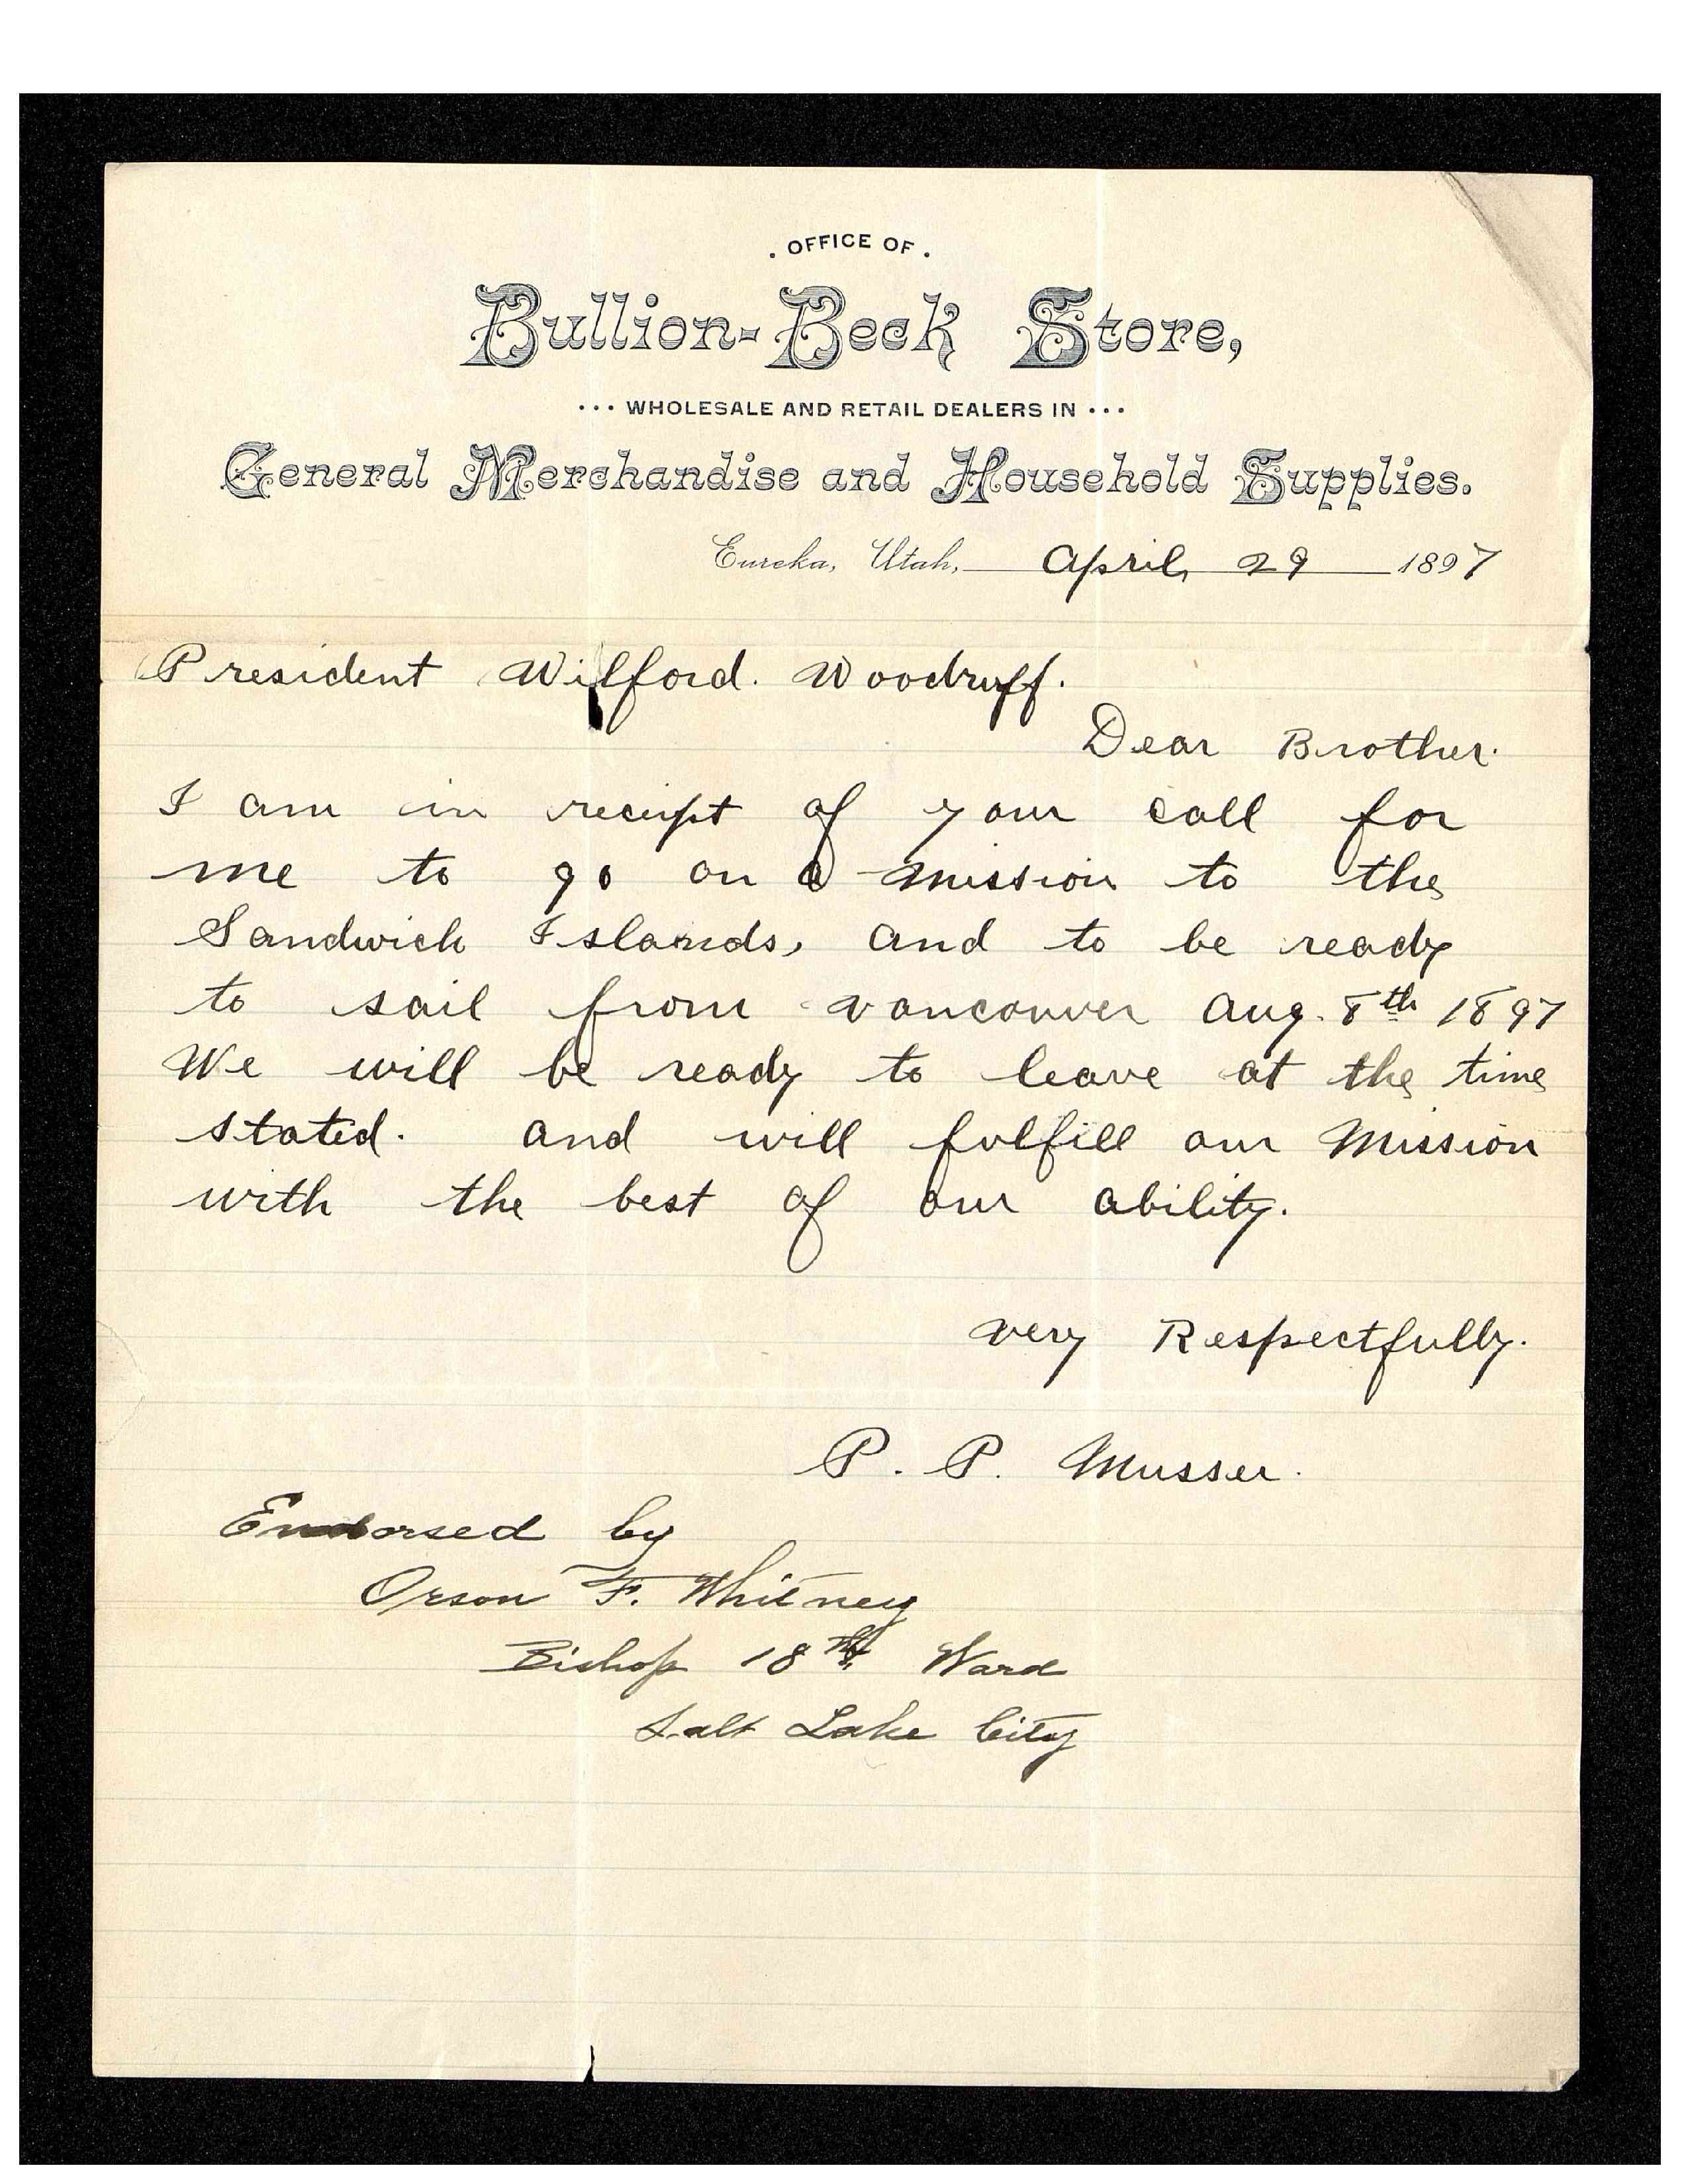 . OFFICE OF .
Bullion-Beck Store,
... WHOLESALE AND RETAIL DEALERS IN ...
General Merchandise and Household Supplies.
Eureka, Utah, April 29 1897
President Wilford. Woodruff.
Dear Brother.
I am in receipt of your call for
me to go on a mission to the
Sandwich Islands, and to be ready
to sail from Vancouver Aug. 8th 1897
We will be ready to leave at the time
stated. and will fulfill our Mission
with the best of our ability.
Very Respectfully.
P. P. Musser.
Endorsed by
Orson F. Whitney
Bishop 18th Ward
Salt Lake City